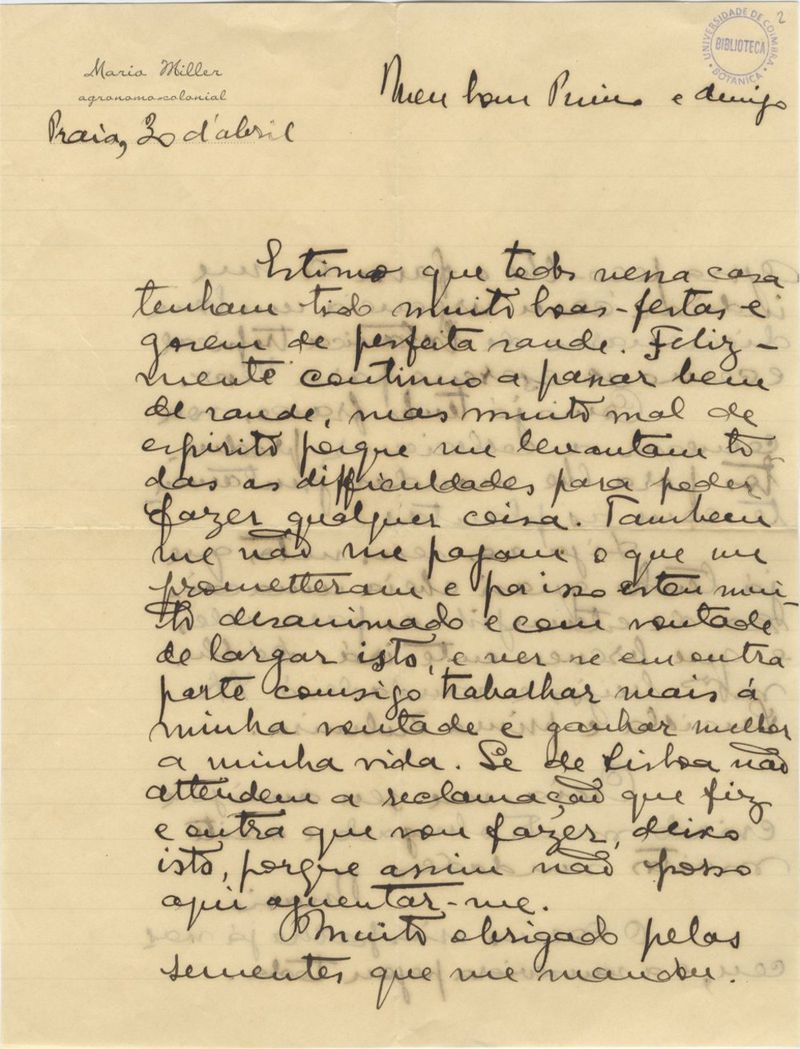 2
UNIVERSIDADE DE COIMBRA
BIBLIOTECA
BOTANICA
Mario Miller
agronomo-colonial
Praia, 30 d'abril
Meu bom Primo e Amigo
Estimo que todos nessa casa
tenham tido muito boas-festas e
gosem de perfeita saude. Feliz-
mente continuo a passar bem
de saude, mas muito mal de
espirito porque me levantam to-
das as difficuldades para poder
fazer qualquer coisa. Tambem
me não me pagam o que me
prometteram e por isso estou mui-
to desanimado e com vontade
de largar isto, e ver se em outra
parte comsigo trabalhar mais á
minha vontade e ganhar melhor
a minha vida. Se de Lisboa não
attendem a reclamação que fiz
e outra que vou fazer, deixo
isto, porque assim não posso
aqui aguentar-me.
Muito obrigado pelas
sementes que me mandou.